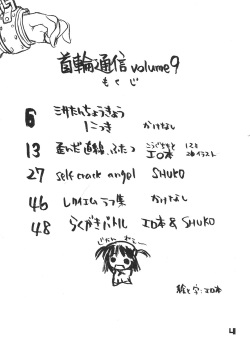 首輪通信 volume9
もくじ
6 ミサたんちょうきょう
1こつき かけなし
13 歪んだ直線、ふたつ エロ本
27 self crack angel SHUKO
46 レクイエム ラフ集 かけなし
48 らくがきバトル エロ本 & SHUKO
絵と字:エロ本